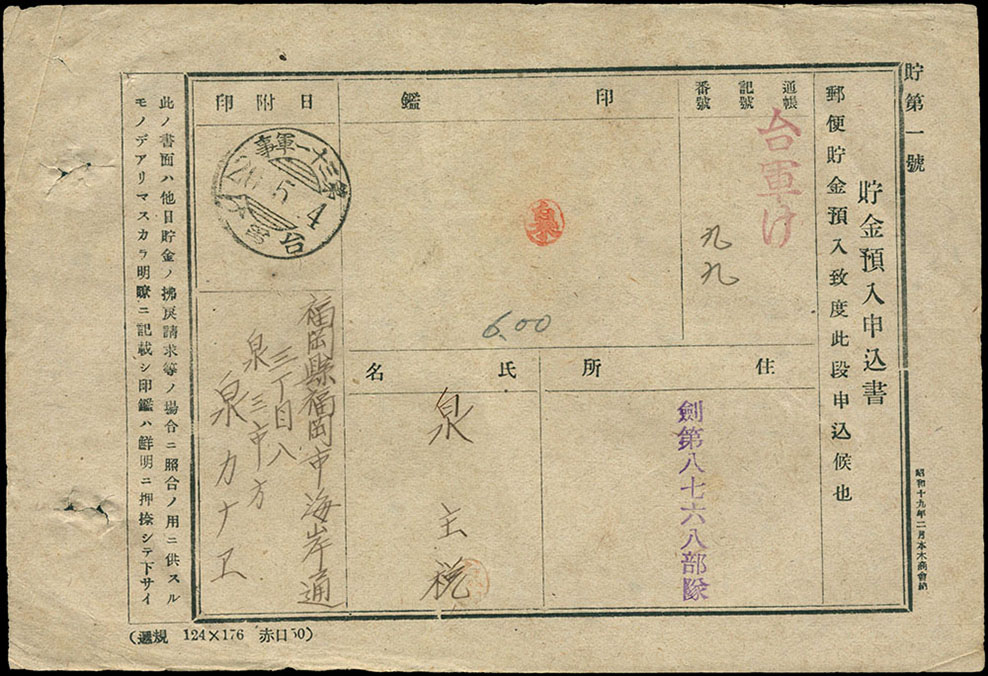 貯第一號
貯金預入申込書
郵便貯金預入致度此段申込候也
昭和十九年二月本木商會納
通帳
記號
番號
台軍け
九九
印鑑
泉
6.00
日附印
第三十一軍事
20.5.4
台湾
住所
劍第八七六八部隊
氏名
泉主税
福岡縣福岡市海岸通
三丁目八
泉三市方
泉カナヱ
此ノ書面ハ他日貯金ノ拂戻請求等ノ場合ニ照合ノ用ニ供スル
モノデアリマスカラ明瞭ニ記載シ印鑑ハ鮮明ニ押捺シテ下サイ
(遞規 124×176 赤口50)